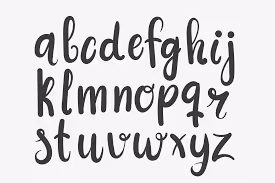 abcdefghij
klmnopqr
stuvwxyz